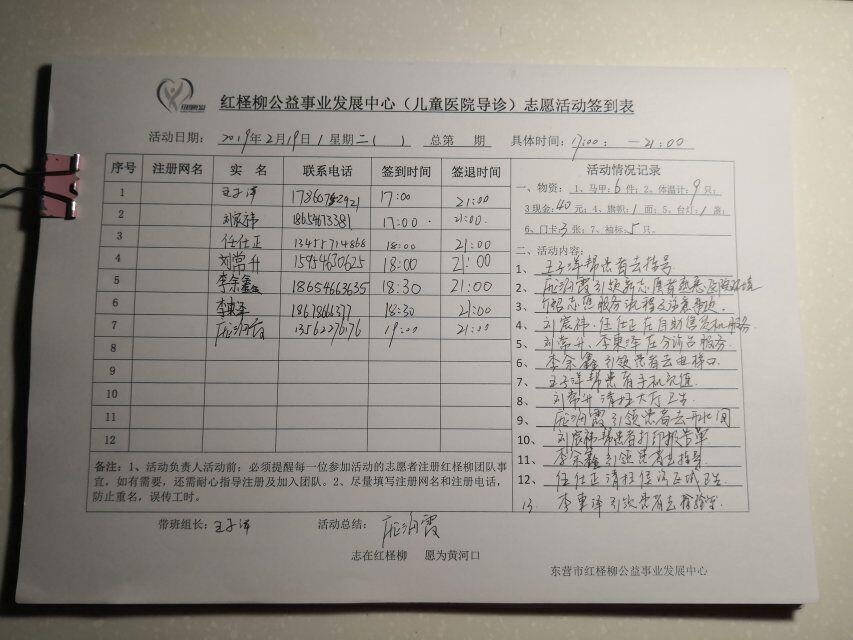 红柽柳公益事业发展中心（儿童医院导诊）志愿活动签到表
活动日期： 2019年2月19日1星期二( ) 总第 期 具体时间：17:00: —21:00
序号 注册网名 实 名 联系电话 签到时间 签退时间
1 王子洋 17:00 21:00
2 刘宸祎 18654673381 17:00 21:00
3 任仕正 13455714868 18:00 21:00
4 刘常升 15954630625 18:00 21:00
5 李余鑫 18654663635 18:30 21:00
6 李東泽 18678666377 18:30 21:00
7 庞润霞 13562276176 19:00 21:00
8
9
10
11
12
备注：1、活动负责人活动前：必须提醒每一位参加活动的志愿者注册红柽柳团队事
宜，如有需要，还需耐心指导注册及加入团队。2、尽量填写注册网名和注册电话，
防止重名，误传工时。
活动情况记录
一、物资： 1、马甲：6件；2、体温计：9只；
3现金：40元；4、旗帜：1面；5、台灯：1盏；
6、门卡3张；7、袖标：5只。
二、活动内容：
1、王子洋帮患者去挂号
2、庞润霞引领新志愿者熟悉医院环境
3、介绍志愿服务流程及注意事项
4、刘宸祎、任仕正在自助售货机服务
5、刘常升、李東泽在分诊台服务
6、李余鑫引领患者去电梯口
7、王子洋帮患者手机充值
8、刘常升清扫大厅卫生
9、庞润霞引领患者去开水间
10、刘宸祎帮患者打印报告单
11、李余鑫引领患者去挂号
12、任仕正清扫候诊区域卫生
13、李東泽引领患者去检验室
带班组长：王子洋 活动总结：庞润霞
志在红柽柳 愿为黄河口
东营市红柽柳公益事业发展中心